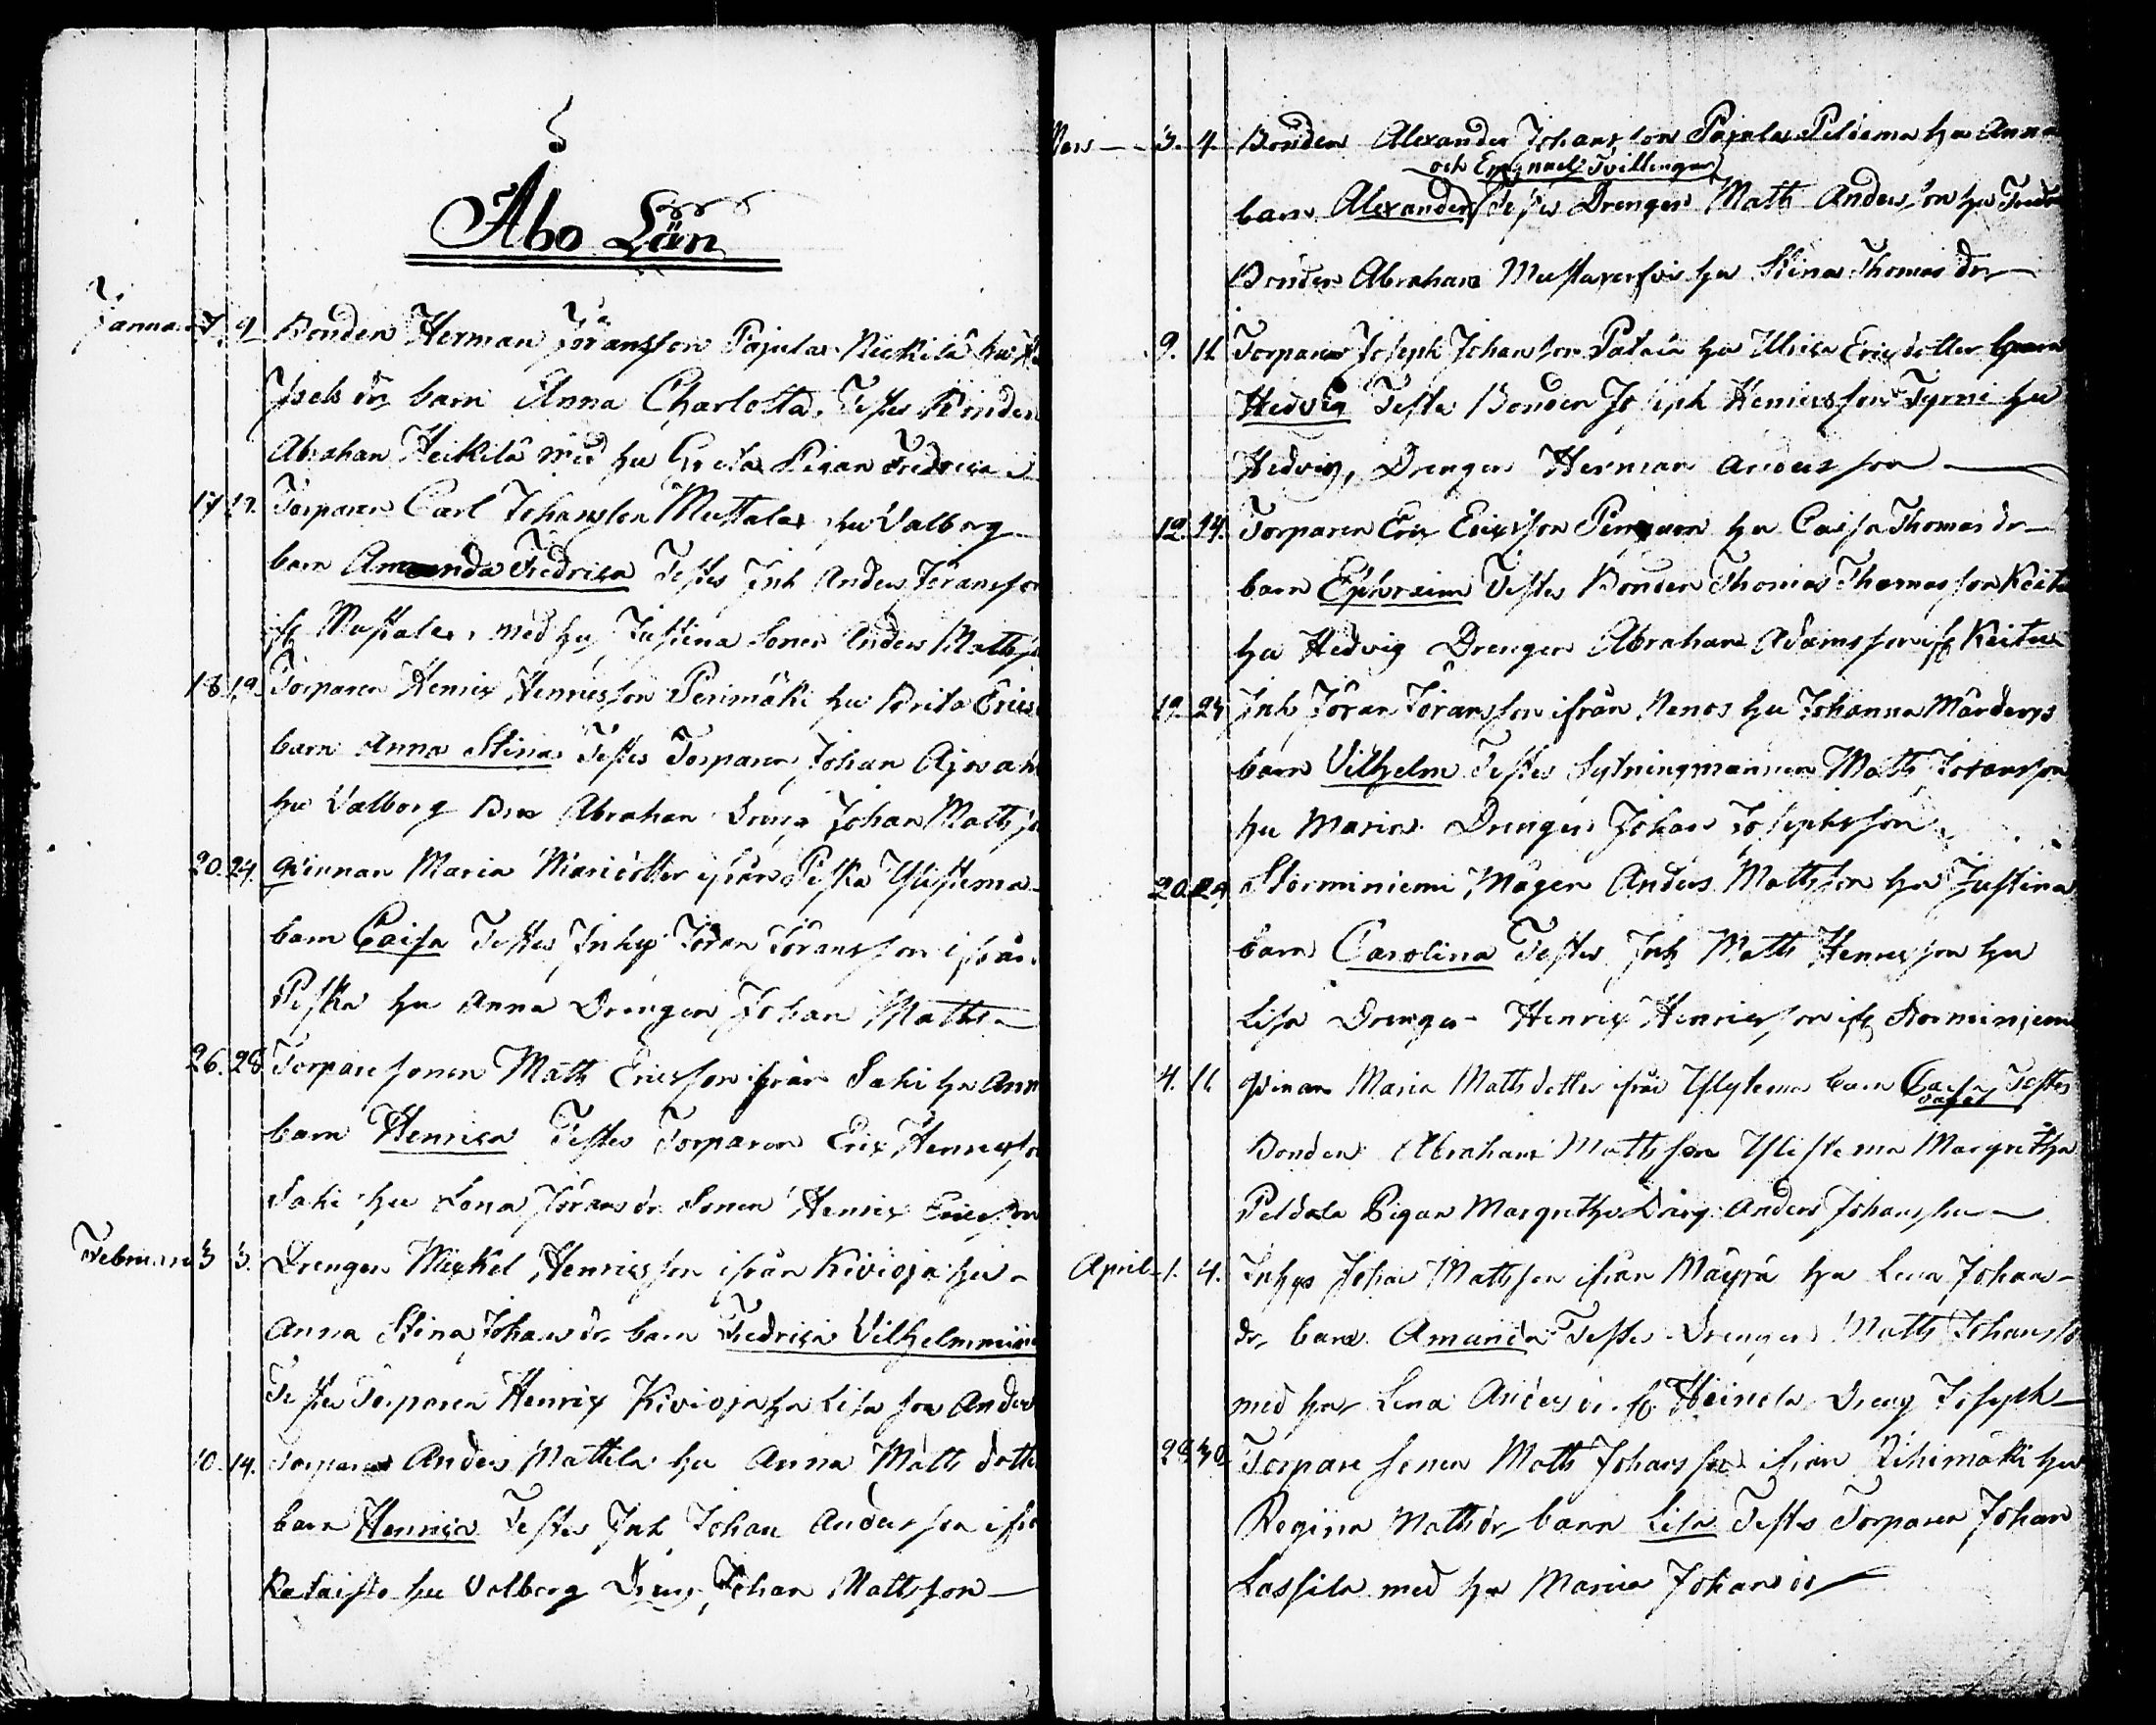 Åbo Län
Januari 7. 9 Bonden Herman Jöransson Pajula Heikilä hu
Isaks dr barn Anna Charlotta. Testes Bonden
Abraham Heikilä med hu Greta Pigan Fredrica
17 Torparen Carl Johansson Mustala hu Valborg
barn Amanda Fredrica Testes Inh Anders Jöransson
Mustala, med hu Justina Sonen Anders Matts
18. 19. Torparen Henrix Henricsson Perimäki hu Brita Erics
barn Anna Stina Testes Torparen Johan
hu Valborg Abraham Johan Matts
20. 24. qvinnan Maria ifrån Peska Ylistema
barn Caisa Testes Inhys Jöran Jöransson ifrån
Peska hu Anna Drengen Johan Matts
26. 28 Torpare sonen Matts Ericsson ifrån Sahi hu Ann
barn Henrica Testes Torparen Erix Henrix
Sahi hu Lena Jörans dr Sonen Henrix Ericsson
Februari 3 3. Drengen Mickel Henricsson ifrån Kivioja hu
Anna Stina Johans dr barn Fredrica Vilhelmmina
Testes Torparen Henrix Kivioja hu Lisa son Anders
10. 14. Torparen Anders Mattila hu Anna Matts dotter
barn Henrica Testes Inh Johan Andersson ifrån
Kataisto hu Valborg Dreng Johan Mattsson
Mars 3. 4. Bonden Alexander Johansson Pajula Peldoma hu Anna
och Emanuel Tvillingar
barn Alexander Testes Drengen Matts Andersson hu
Bonden Abraham hu Stina Thomas dr
9. 11. Torparen Joseph Johansson hu Ulrica Ericsdotter barn
Hedvig Teste Bonden Joseph Henricsson Tyrni hu
Hedvig, Drengen Herman Andersson
12. 14. Torparen Erix Ericsson hu Caisa Thomas dr
barn Ephraim Testes Bonden Thomas Thomasson
hu Hedvig Drengen Abraham Adamsson
19. 24 Inh Jöran Jöransson ifrån Nenos hu Johanna
barn Vilhelm Testes Sytningmannen Matts Jöransson
hu Maria Drengen Johan Josephsson
20. 24 Storminiemi Mågen Anders Mattsson hu Justina
barn Carolina Testes Inh Matts Henricsson hu
Lisa Drengen Henrix Henricsson Storminiemi
4. 11 qvinan Maria Matts dotter ifrån barn Caisa Testes
Bonden Abraham Mattsson Margretha
Peldola Pigan Margretha Dreng Anders Johansson
April 1. 4. Inhys Johan Mattsson ifrån Mäyrä hu Lena Johans
dr barn Amanda Teste Drengen Matts Johansso
med hu Lena Anders dr Heinola Dreng Joseph
28 30 Torpare sonen Matts Johansson ifrån Rihimäki hu
Regina Matts dr barn Lisa Testes Torparen Johan
Lassila med hu Maria Johans dr